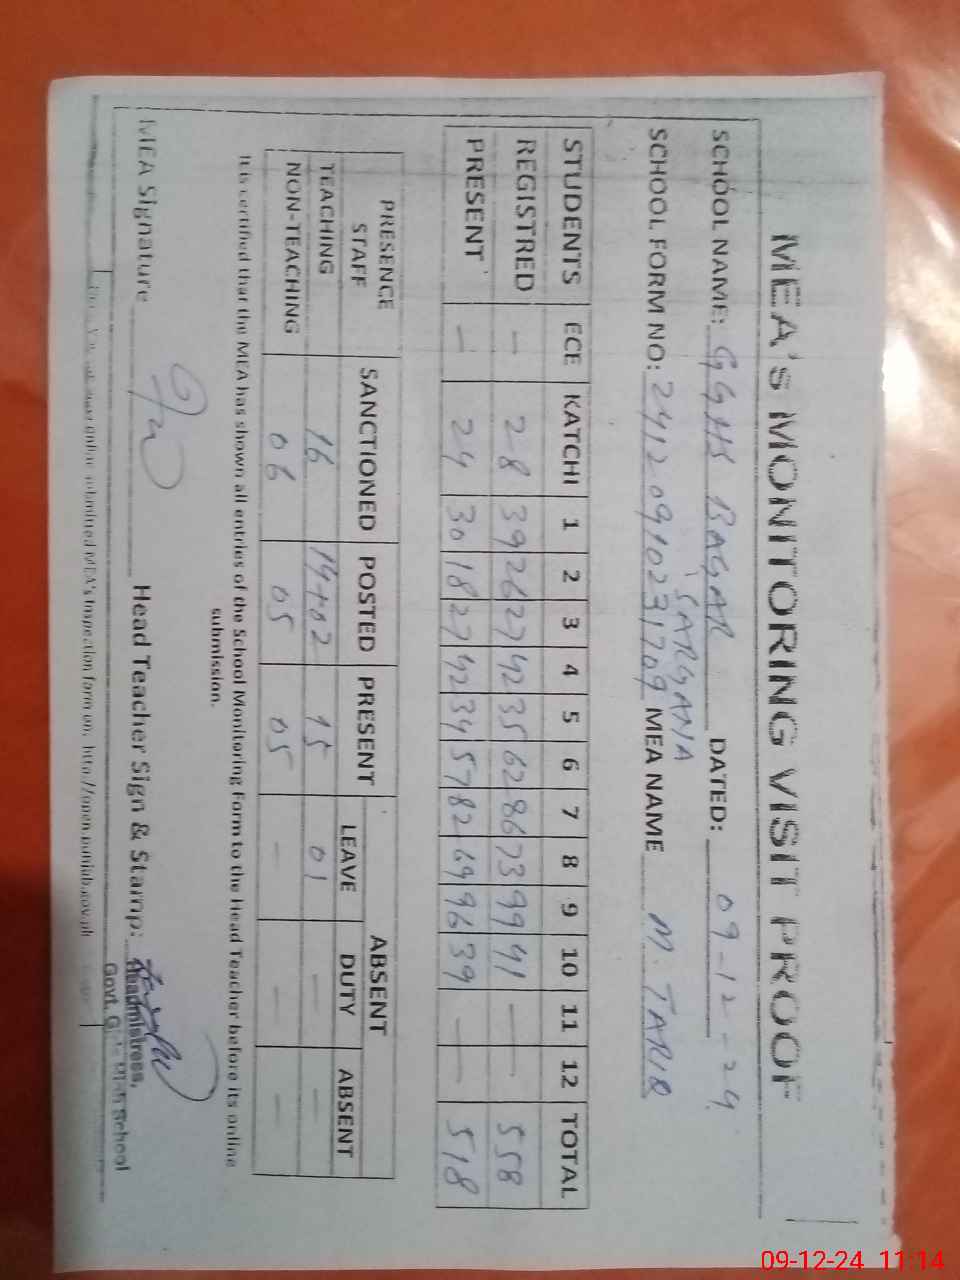 MEA's MONITORING VISIT PROOF
SCHOOL NAME: GGHS BAGAR SARGANA DATED: 09-12-24
SCHOOL FORM NO: 24120910231709 MEA NAME M. TARIQ
STUDENTS ECE KATCHI 1 2 3 4 5 6 7 8 9 10 11 12 TOTAL
REGISTRED — 28 39 26 27 42 35 62 86 73 99 41 — — 558
PRESENT — 24 30 18 27 42 34 57 82 69 96 39 — — 518
PRESENCE STAFF SANCTIONED POSTED PRESENT ABSENT
LEAVE DUTY ABSENT
TEACHING 16 14+02 15 01 — —
NON-TEACHING 06 05 05 — — —
It is certified that the MEA has shown all entries of the School Monitoring Form to the Head Teacher before its online
submission.
MEA Signature Head Teacher Sign & Stamp:
Headmistress,
Govt. Girls High School
online submitted MEA's Inspection form on: http://open.punjab.gov.pk
09-12-24 11:14